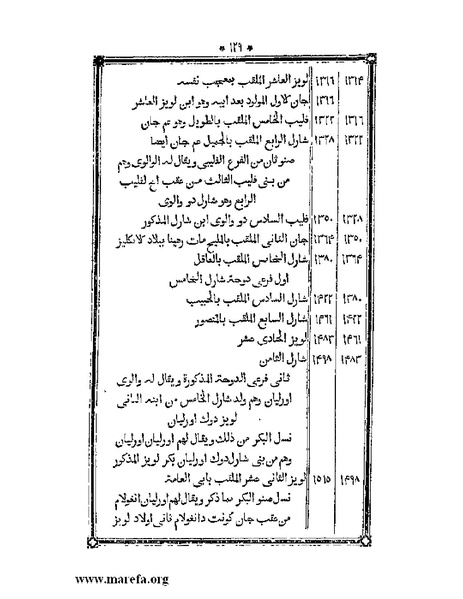 * ١٢٩ *
١٣١٤ ١٣١٦ لويز العاشر الملقب بمعجب نفسه
١٣١٦ جان كلاول المولود بعد ابيه وهو ابن لويز العاشر
١٣١٦ ١٣٢٢ فليب الخامس الملقب بالطويل وهو عم جان
١٣٢٢ ١٣٢٨ شارل الرابع الملقب بالجميل عم جان ايضا
صنو ثان من الفرع الفليبى ويقال له الوالوى وهم
من بنى فليب الثالث من عقب اخ لفليب
الرابع وهو شارل دو والوى
١٣٢٨ ١٣٥٠ فليب السادس دو والوى ابن شارل المذكور
١٣٥٠ ١٣٦٤ جان الثانى الملقب بالمليح مات رهينا ببلاد كلانكليز
١٣٦٤ ١٣٨٠ شارل الخامس الملقب بالعاقل
اول فرعى دوحة شارل الخامس
١٣٨٠ ١٤٢٢ شارل السادس الملقب بالحبيب
١٤٢٢ ١٤٦١ شارل السابع الملقب بالمنصور
١٤٦١ ١٤٨٣ لويز الحادى عشر
١٤٨٣ ١٤٩٨ شارل الثامن
ثانى فرعى الدوحة المذكورة ويقال له والوى
اورليان وهم ولد شارل الخامس من ابنه الثانى
لويز دوك اورليان
نسل البكر من ذلك ويقال لهم اورليان اورليان
وهم من بنى شارل دوك اورليان بكر لويز المذكور
١٤٩٨ ١٥١٥ لويز الثانى عشر الملقب بابى العامة
نسل صنو البكر مما ذكر ويقال لهم اورليان انغولام
من عقب جان كونت دانغولام ثانى اولاد لويز
www.marefa.org